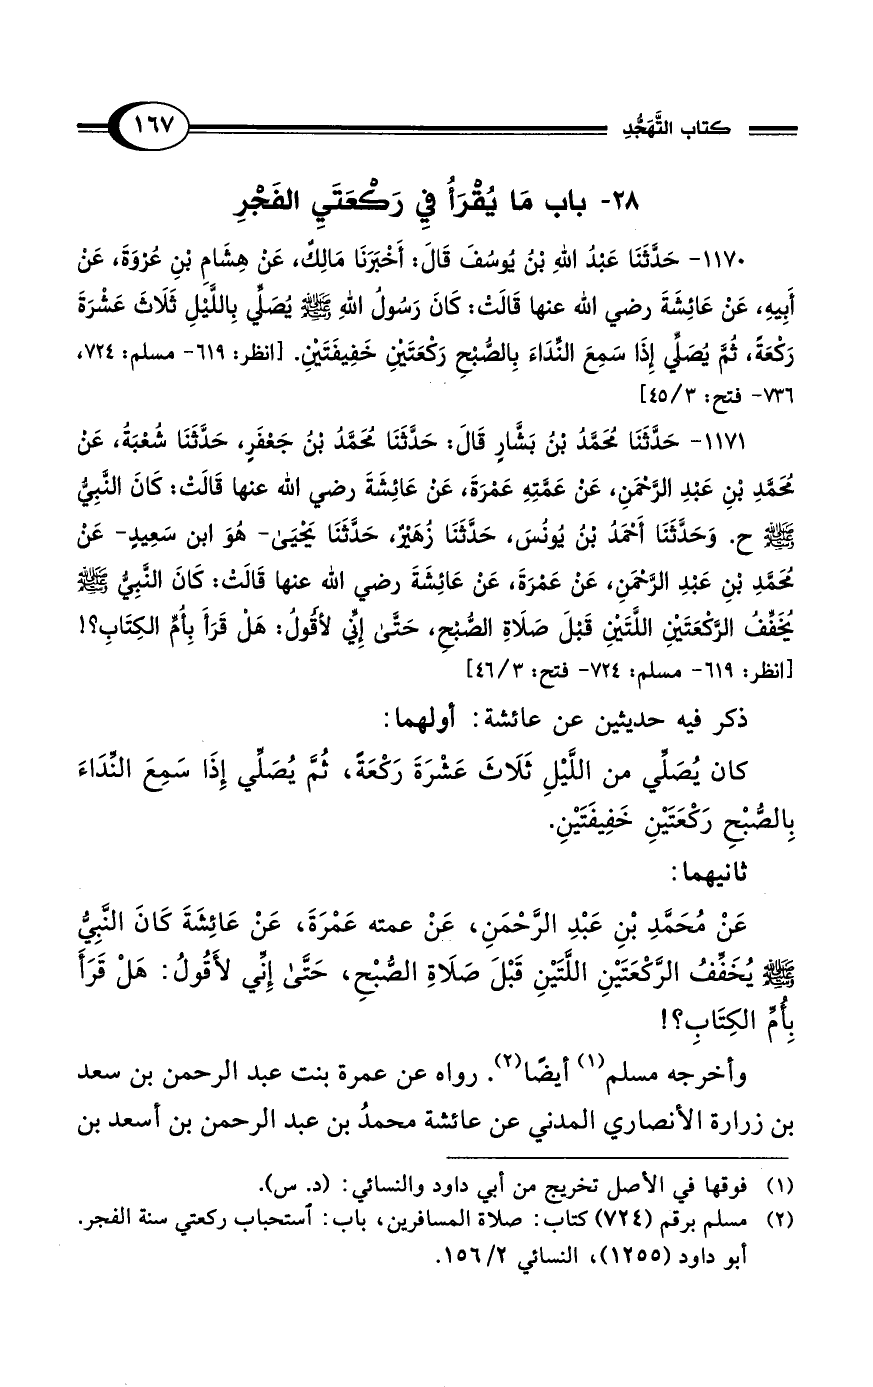 كتاب التَّهَجُّدِ
١٦٧
٢٨- باب مَا يُقْرَأُ فِي رَكْعَتَيِ الفَجْرِ
١١٧٠- حَدَّثَنَا عَبْدُ اللهِ بْنُ يُوسُفَ قَالَ: أَخْبَرَنَا مَالِكٌ، عَنْ هِشَامِ بْنِ عُرْوَةَ، عَنْ
أَبِيهِ، عَنْ عَائِشَةَ رضي الله عنها قَالَتْ: كَانَ رَسُولُ اللهِ ﷺ يُصَلِّي بِاللَّيْلِ ثَلَاثَ عَشْرَةَ
رَكْعَةً، ثُمَّ يُصَلِّي إِذَا سَمِعَ النِّدَاءَ بِالصُّبْحِ رَكْعَتَيْنِ خَفِيفَتَيْنِ. [انظر: ٦١٩- مسلم: ٧٢٤،
٧٣٦- فتح: ٣/ ٤٥]
١١٧١- حَدَّثَنَا مُحَمَّدُ بْنُ بَشَّارٍ قَالَ: حَدَّثَنَا مُحَمَّدُ بْنُ جَعْفَرٍ، حَدَّثَنَا شُعْبَةُ، عَنْ
مُحَمَّدِ بْنِ عَبْدِ الرَّحْمَنِ، عَنْ عَمَّتِهِ عَمْرَةَ، عَنْ عَائِشَةَ رضي الله عنها قَالَتْ: كَانَ النَّبِيُّ
ﷺ ح. وَحَدَّثَنَا أَحْمَدُ بْنُ يُونُسَ، حَدَّثَنَا زُهَيْرٌ، حَدَّثَنَا يَحْيَىٰ- هُوَ ابن سَعِيدٍ- عَنْ
مُحَمَّدِ بْنِ عَبْدِ الرَّحْمَنِ، عَنْ عَمْرَةَ، عَنْ عَائِشَةَ رضي الله عنها قَالَتْ: كَانَ النَّبِيُّ ﷺ
يُخَفِّفُ الرَّكْعَتَيْنِ اللَّتَيْنِ قَبْلَ صَلَاةِ الصُّبْحِ، حَتَّىٰ إِنِّي لأَقُولُ: هَلْ قَرَأَ بِأُمِّ الكِتَابِ؟!
[انظر: ٦١٩- مسلم: ٧٢٤- فتح: ٣/ ٤٦]
ذكر فيه حديثين عن عائشة: أولهما:
كان يُصَلِّي من اللَّيْلِ ثَلَاثَ عَشْرَةَ رَكْعَةً، ثُمَّ يُصَلِّي إِذَا سَمِعَ النِّدَاءَ
بِالصُّبْحِ رَكْعَتَيْنِ خَفِيفَتَيْنِ.
ثانيهما:
عَنْ مُحَمَّدِ بْنِ عَبْدِ الرَّحْمَنِ، عَنْ عمته عَمْرَةَ، عَنْ عَائِشَةَ كَانَ النَّبِيُّ
ﷺ يُخَفِّفُ الرَّكْعَتَيْنِ اللَّتَيْنِ قَبْلَ صَلَاةِ الصُّبْحِ، حَتَّىٰ إِنِّي لأَقُولُ: هَلْ قَرَأَ
بِأُمِّ الكِتَابِ؟!
وأخرجه مسلم(١) أيضًا(٢). رواه عن عمرة بنت عبد الرحمن بن سعد
بن زرارة الأنصاري المدني عن عائشة محمدُ بن عبد الرحمن بن أسعد بن
(١) فوقها في الأصل تخريج من أبي داود والنسائي: (د. س).
(٢) مسلم برقم (٧٢٤) كتاب: صلاة المسافرين، باب: ٱستحباب ركعتي سنة الفجر.
أبو داود (١٢٥٥)، النسائي ٢/ ١٥٦.